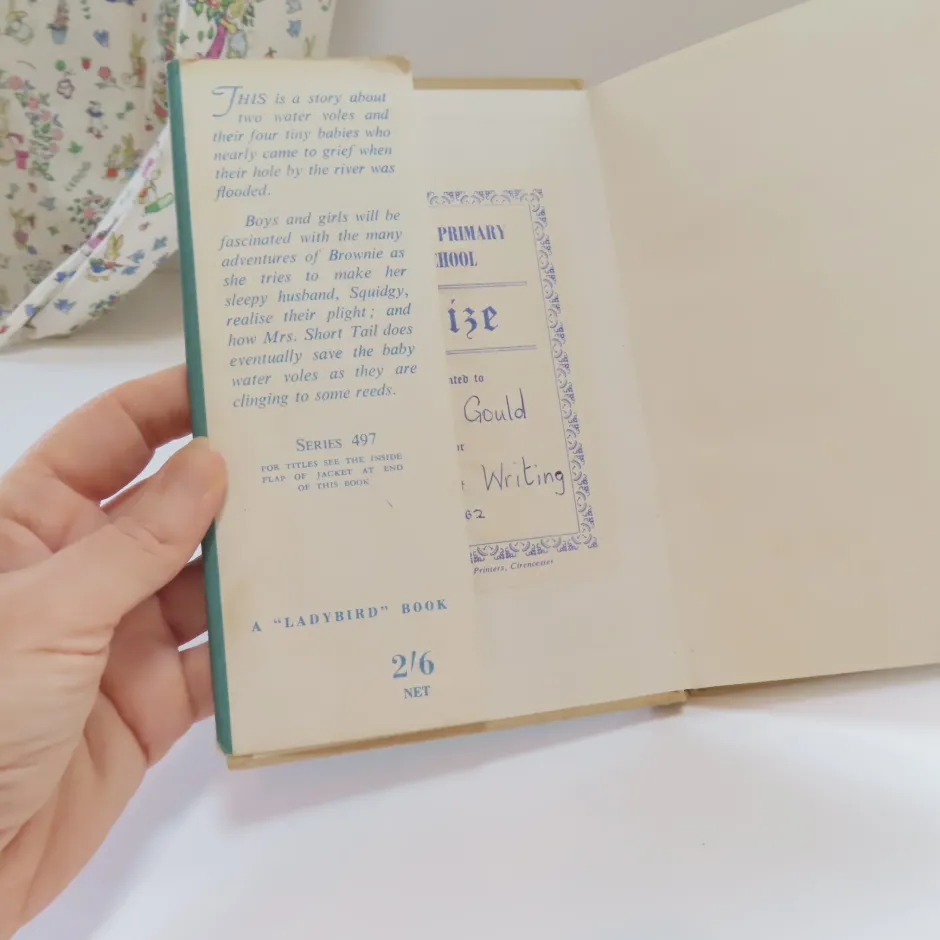 THIS is a story about
two water voles and
their four tiny babies who
nearly came to grief when
their hole by the river was
flooded.
Boys and girls will be
fascinated with the many
adventures of Brownie as
she tries to make her
sleepy husband, Squidgy,
realise their plight; and
how Mrs. Short Tail does
eventually save the baby
water voles as they are
clinging to some reeds.
SERIES 497
FOR TITLES SEE THE INSIDE
FLAP OF JACKET AT END
OF THIS BOOK
A "LADYBIRD" BOOK
2/6
NET
PRIMARY
HOOL
ize
nted to
Gould
Writing
62
Printers, Cirencester